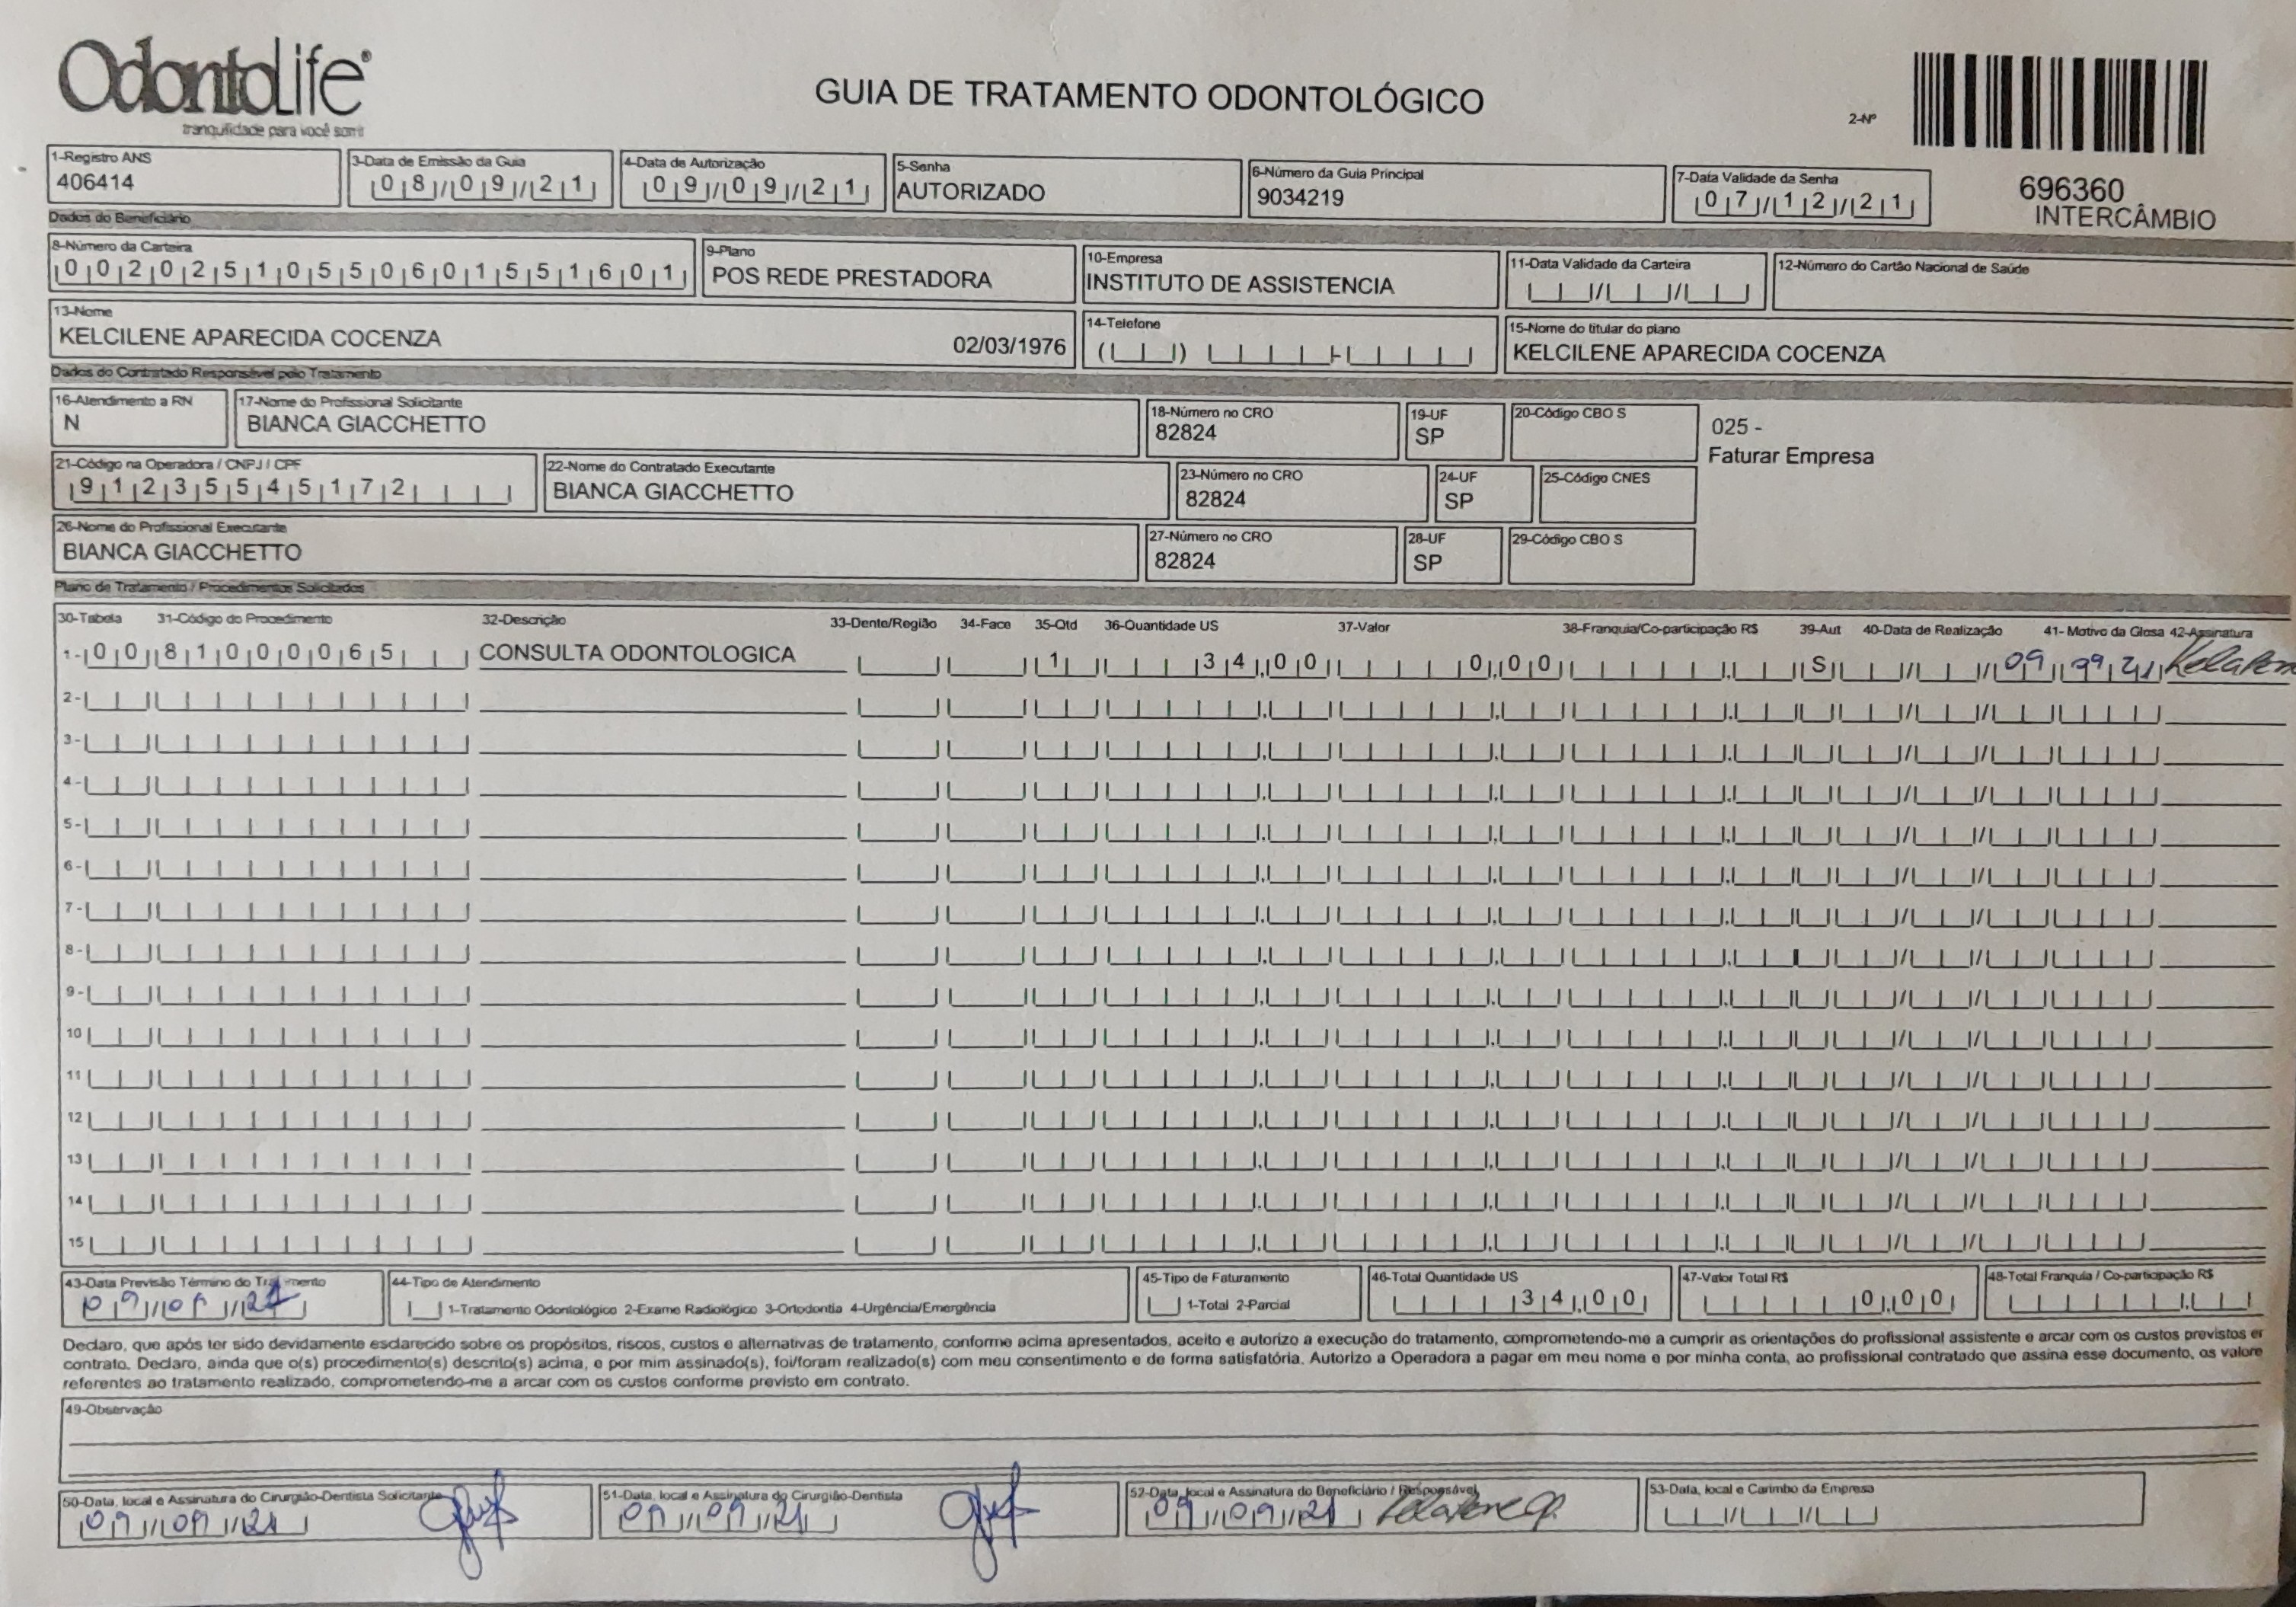 OdontoLife®
tranquilidade para você sorrir
GUIA DE TRATAMENTO ODONTOLÓGICO
2-Nº
696360
INTERCÂMBIO
1-Registro ANS
406414
3-Data de Emissão da Guia
08/09/21
4-Data de Autorização
09/09/21
5-Senha
AUTORIZADO
6-Número da Guia Principal
9034219
7-Data Validade da Senha
07/12/21
Dados do Beneficiário
8-Número da Carteira
00202510550601551601
9-Plano
POS REDE PRESTADORA
10-Empresa
INSTITUTO DE ASSISTENCIA
11-Data Validade da Carteira
12-Número do Cartão Nacional de Saúde
13-Nome
KELCILENE APARECIDA COCENZA 02/03/1976
14-Telefone
15-Nome do titular do plano
KELCILENE APARECIDA COCENZA
Dados do Contratado Responsável pelo Tratamento
16-Atendimento a RN
N
17-Nome do Profissional Solicitante
BIANCA GIACCHETTO
18-Número no CRO
82824
19-UF
SP
20-Código CBO S
025 -
Faturar Empresa
21-Código na Operadora / CNPJ / CPF
91235545172
22-Nome do Contratado Executante
BIANCA GIACCHETTO
23-Número no CRO
82824
24-UF
SP
25-Código CNES
26-Nome do Profissional Executante
BIANCA GIACCHETTO
27-Número no CRO
82824
28-UF
SP
29-Código CBO S
Plano de Tratamento / Procedimentos Solicitados
30-Tabela 31-Código do Procedimento 32-Descrição 33-Dente/Região 34-Face 35-Qtd 36-Quantidade US 37-Valor 38-Franquia/Co-participação R$ 39-Aut 40-Data de Realização 41- Motivo da Glosa 42-Assinatura
1- 00 81000065 CONSULTA ODONTOLOGICA 1 34,00 0,00 S 09
2-
3-
4-
5-
6-
7-
8-
9-
10
11
12
13
14
15
43-Data Previsão Término do Tratamento
44-Tipo de Atendimento
1-Tratamento Odontológico 2-Exame Radiológico 3-Ortodontia 4-Urgência/Emergência
45-Tipo de Faturamento
1-Total 2-Parcial
46-Total Quantidade US
34,00
47-Valor Total R$
0,00
48-Total Franquia / Co-participação R$
Declaro, que após ter sido devidamente esclarecido sobre os propósitos, riscos, custos e alternativas de tratamento, conforme acima apresentados, aceito e autorizo a execução do tratamento, comprometendo-me a cumprir as orientações do profissional assistente e arcar com os custos previstos
contrato. Declaro, ainda que o(s) procedimento(s) descrito(s) acima, e por mim assinado(s), foi/foram realizado(s) com meu consentimento e de forma satisfatória. Autorizo a Operadora a pagar em meu nome e por minha conta, ao profissional contratado que assina esse documento, os valore
referentes ao tratamento realizado, comprometendo-me a arcar com os custos conforme previsto em contrato.
49-Observação
50-Data, local e Assinatura do Cirurgião-Dentista Solicitante
09/09/21
51-Data, local e Assinatura do Cirurgião-Dentista
09/09/21
52-Data, local e Assinatura do Beneficiário / Responsável
09/09/21
53-Data, local e Carimbo da Empresa